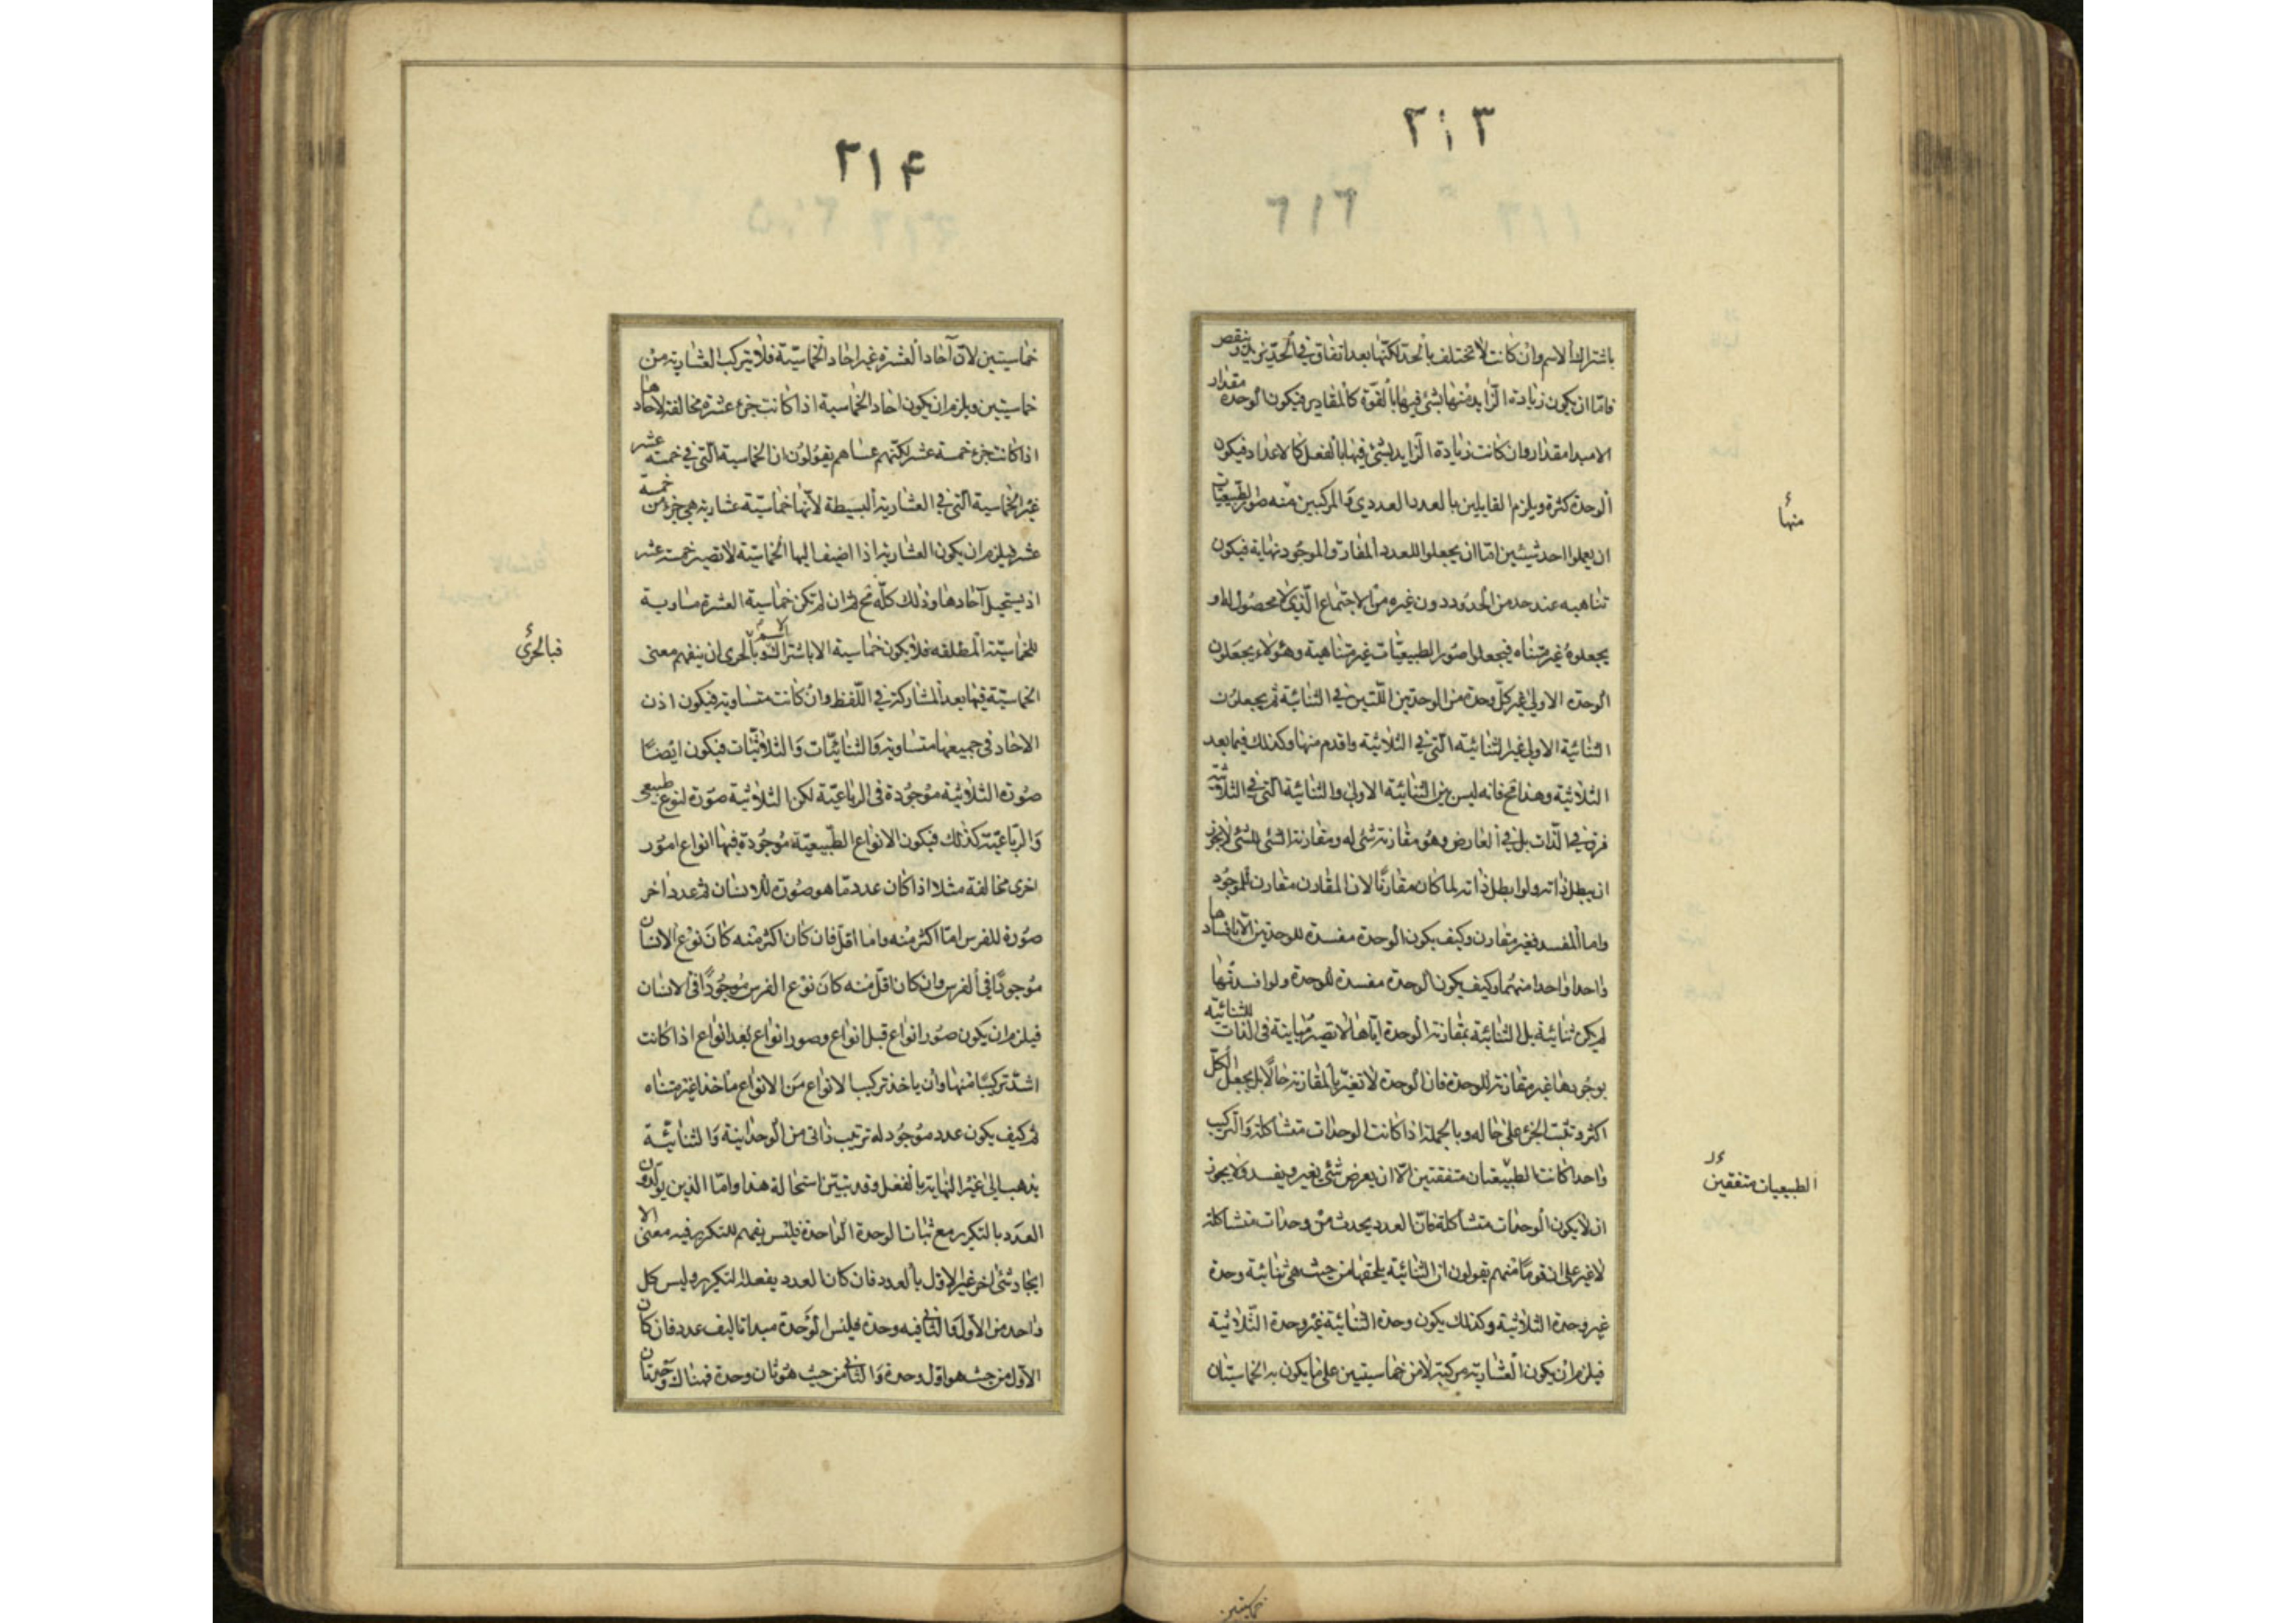 ٢١٣
٦١٦
باشتراك الاسم وان كانت لا تختلف بالحد لكنها بعد اتفاق في الحد تزيد وتنقص
فاما ان يكون زيادة الزايد منها بشئ فيها بالقوة كالمقادير فيكون الوحدة مقدار
الا مبدا مقدار وان كانت زيادة الزايد بشئ فيها بالفعل كالاعداد فيكون
الوحدة كثرة ويلزم القايلين بالعدد العددي والمركبين منه صور الطبيعيات
ان يعملوا احد شيئين اما ان يجعلوا للعدد المفارق الموجود نهاية فيكون
تناهيه عند حد من الحدود دون غيره من الاجتماع الذي لا محصول له او
يجعلوه غير متناه فيجعلوا صور الطبيعيات غير متناهية وهؤلاء يجعلون
الوحدة الاولى غير كل وحدة من الوحدتين اللتين في الثنائية ثم يجعلون
الثنائية الاولى غير الثنائية التي في الثلاثية واقدم منها وكذلك فيما بعد
الثلاثية وهذا مح فانه ليس بين الثنائية الاولى والثنائية التي في الثلاثية
فرق في الذات بل في العارض وهو مقارنة شئ له ومقارنة الشئ للشئ لا يجوز
ان يبطل ذاته ولو ابطل ذاته لما كان مقارنا لان المقارن مقارن للموجود
واما المفسد فغير مقارن وكيف يكون الوحدة مفسدة للوحدتين الا بافسادها
واحدا واحدا منهما وكيف يكون الوحدة مفسدة للوحدة ولو افسدتها
لم يكن ثنائية بل الثنائية بمقارنة الوحدة اياها لا تصير مباينة في الذات للثنائية
بوجودها غير مقارنة للوحدة فان الوحدة لا تغير بالمقارنة حالا بل يجعل الكل
اكثر وتثبت الجزء على حاله وبالجملة اذا كانت الوحدات متشاكلة والتركيب
واحدا كانت الطبيعتان متفقتين الا ان يعرض شئ بغير ويفسد ولا يجوز
ان لا يكون الوحدات متشاكلة فان العدد يحدث من وحدات متشاكلة
لا غير على ان قوما منهم يقولون ان الثنائية يلحقها من حيث هي ثنائية وحدة
غير وحدة الثلاثية وكذلك يكون وحدة الثنائية غير وحدة الثلاثية
فيلزم ان يكون العشارية مركبة لا من خماسيتين على ما يكون به الخماسيتان
منها
الطبيعيات متفقين
خماسيتين
٢١۴
خماسيتين لان آحاد العشرة غير احاد الخماسية فلا تتركب العشارية من
خماسيتين ويلزم ان يكون احاد الخماسية اذا كانت جزء عشرة مخالفة لاحادها
اذا كانت جزء خمسة عشر لكنهم عساهم يقولون ان الخماسية التي في خمسة عشر
غير الخماسية التي في العشارية البسيطة لانها خماسية عشارية هي جزء من خمسة
عشر فيلزم ان يكون العشارية اذا اضيف اليها الخماسية لا تصير خمسة عشر
اذ يستحيل آحادها وذلك كله مح ثم ان لم تكن خماسية العشرة مساوية
للخماسية المطلقه فلا يكون خماسية الا باشتراك الاسم وبالحرى ان يفهم معنى
الخماسية فيها بعد المشاركة في اللفظ وان كانت متساوية فيكون اذن
الاحاد في جميعها متساوية والثنائيات والثلاثيات فيكون ايضا
صورة الثلاثية موجودة في الرباعية لكن الثلاثية صورة لنوع طبيعى
والرباعية كذلك فيكون الانواع الطبيعية موجودة فيها انواع امور
اخرى مخالفة مثلا اذا كان عدد ما هو صورة للانسان ثم عدد اخر
صورة للفرس اما اكثر منه واما اقل فان كان اكثر منه كان نوع الانسان
موجودا في الفرس وان كان اقل منه كان نوع الفرس موجودا في الانسان
فيلزم ان يكون صور انواع قبل انواع وصور انواع بعد انواع اذا كانت
اشد تركيبا منها وان ياخذ تركيب الانواع من الانواع ماخذا غير متناه
ثم كيف يكون عدد موجود له ترتيب ذاتى من الوحدانية والثنائية
يذهب الى غير النهاية بالفعل وقد تبين استحالة هذا واما الذين يولدون
العدد بالتكرير مع ثبات الوحدة الواحدة فليس يفهم للتكرير فيه معنى الا
ايجاد شئ اخر غير الاول بالعدد فان كان العدد يفعله التكرير وليس كل
واحد من الاول والثاني فيه وحدة فليس الوحدة مبدا تاليف عدد فان كان
الاول من حيث هو اول وحدة والثاني من حيث هو ثان وحدة فهناك وحدتان
فبالحرى